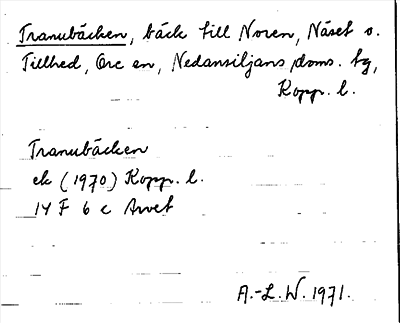 Tranubäcken, bäck till Noren, Näset o.
Tillhed, Ore sn, Nedansiljans doms. tg,
Kopp. l.
Tranubäcken
ek (1970) Kopp. l.
14 F 6 c Arvet
A.-L. W. 1971.